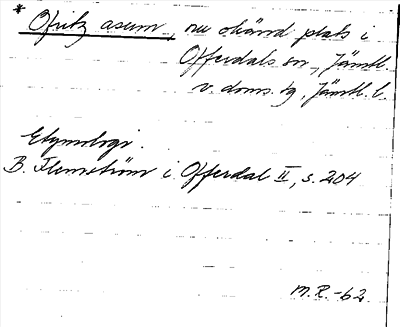 * Ofritz asum, nu okänd plats i
Offerdals sn, Jämtl.
v. doms. tg, Jämtl. l.
Etymologi.
B. Flemström i Offerdal II, s. 204
M.R. -62